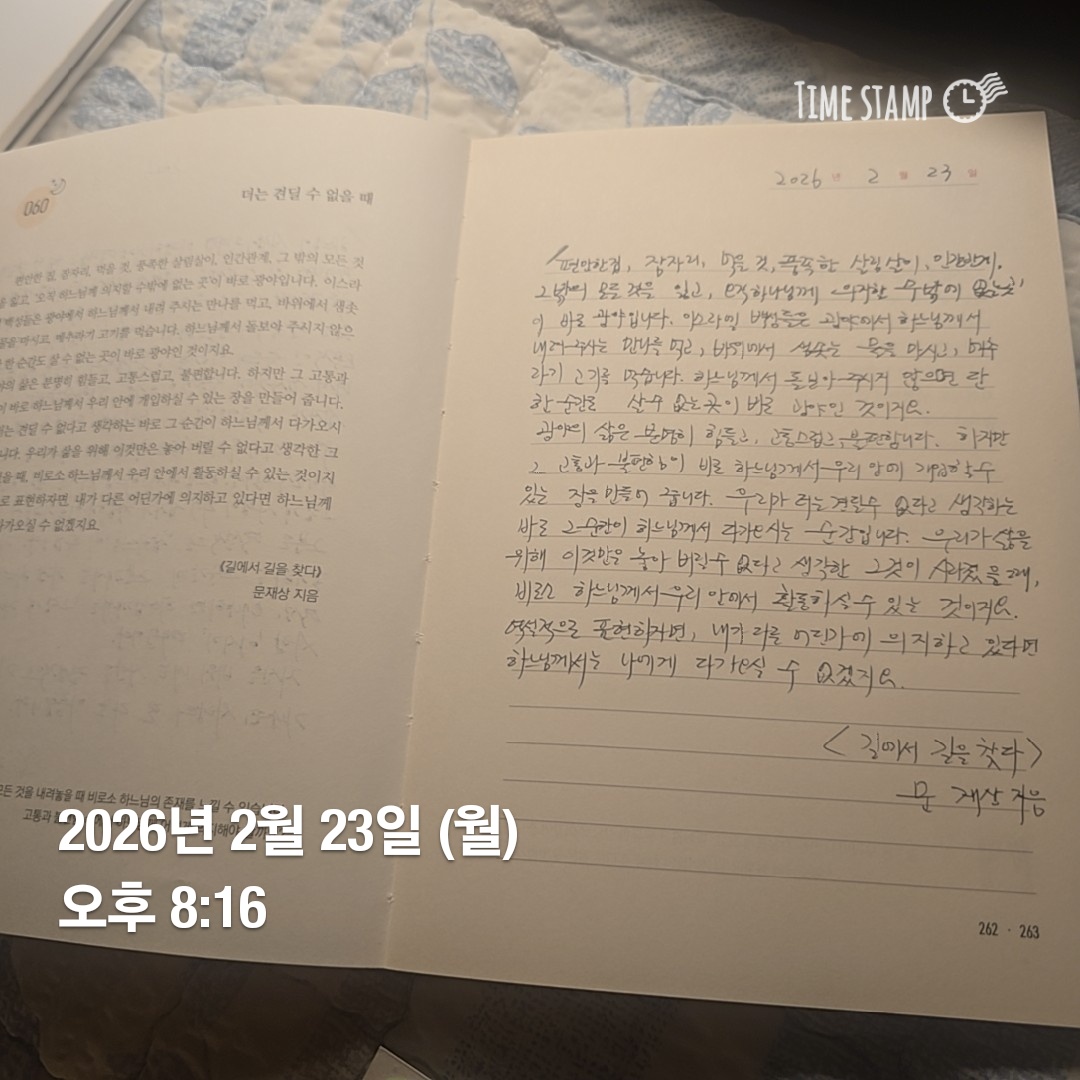 TIME STAMP
060
더는 견딜 수 없을 때
편안한 집, 잠자리, 먹을 것, 풍족한 살림살이, 인간관계, 그 밖의 모든 것
을 잃고, 오직 하느님께 의지할 수밖에 없는 곳이 바로 광야입니다. 이스라
백성들은 광야에서 하느님께서 내려 주시는 만나를 먹고, 바위에서 샘솟
물을 마시고, 메추라기 고기를 먹습니다. 하느님께서 돌보아 주시지 않으
한 순간도 살 수 없는 곳이 바로 광야인 것이지요.
의 삶은 분명히 힘들고, 고통스럽고, 불편합니다. 하지만 그 고통과
이 바로 하느님께서 우리 안에 개입하실 수 있는 장을 만들어 줍니다.
는 견딜 수 없다고 생각하는 바로 그 순간이 하느님께서 다가오시
니다. 우리가 삶을 위해 이것만은 놓아 버릴 수 없다고 생각한 그
을 때, 비로소 하느님께서 우리 안에서 활동하실 수 있는 것이지
로 표현하자면, 내가 다른 어딘가에 의지하고 있다면 하느님께
다가오실 수 없겠지요.
《길에서 길을 찾다》
문재상 지음
모든 것을 내려놓을 때 비로소 하느님의 존재를 느낄 수
고통과
2026년 2월 23일
편안한 집, 잠자리, 먹을 것, 풍족한 살림살이, 인간관계,
그 밖의 모든 것을 잃고, 오직 하나님께 의지할 수밖에 없는 곳
이 바로 광야입니다. 이스라엘 백성들은 광야에서 하느님께서
내려 주시는 만나를 먹고, 바위에서 샘솟는 물을 마시고, 메추
라기 고기를 먹습니다. 하느님께서 돌보아 주시지 않으면 단
한 순간도 살 수 없는 곳이 바로 광야인 것이지요.
광야의 삶은 분명히 힘들고, 고통스럽고, 불편합니다. 하지만
그 고통과 불편함이 바로 하느님께서 우리 안에 개입할 수
있는 장을 만들어 줍니다. 우리가 더는 견딜 수 없다고 생각하는
바로 그 순간이 하느님께서 다가오시는 순간입니다. 우리가 삶을
위해 이것만은 놓아 버릴 수 없다고 생각한 그것이 사라졌을 때,
비로소 하느님께서 우리 안에서 활동하실 수 있는 것이지요.
역설적으로 표현하자면, 내가 다른 어딘가에 의지하고 있다면
하느님께서는 나에게 다가오실 수 없겠지요.
<길에서 길을 찾다>
문재상 지음
262 · 263
2026년 2월 23일 (월)
오후 8:16